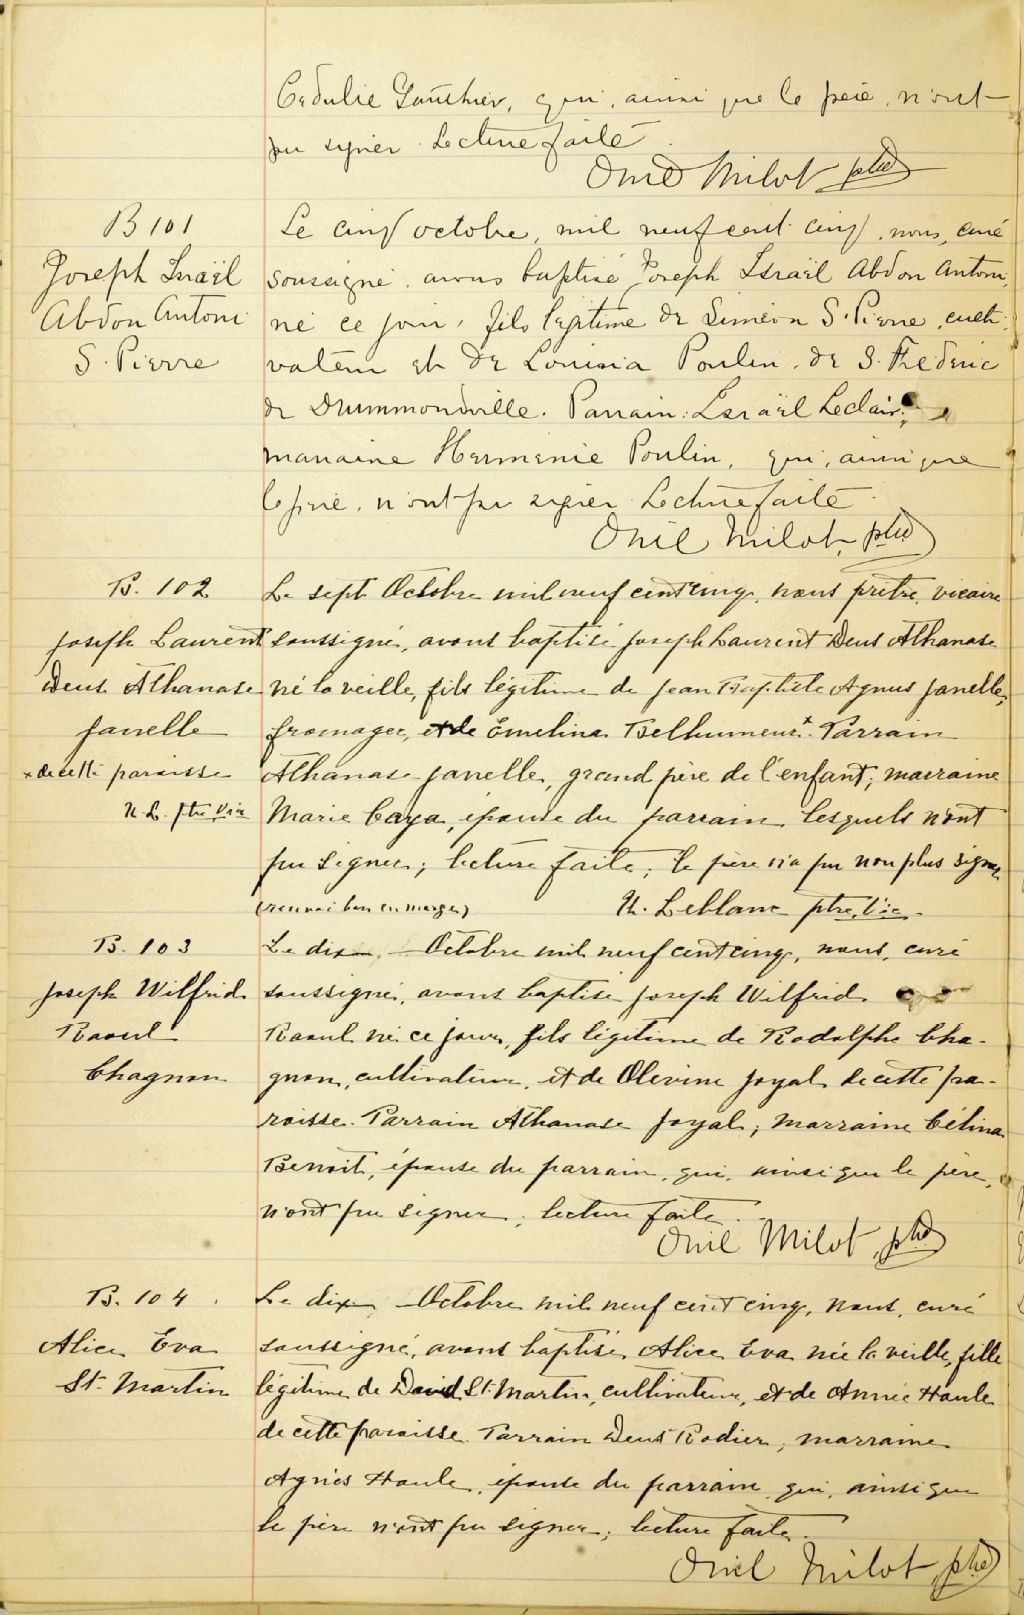 Cédulie Gauthier, qui, ainsi que le père, n'ont
pu signer. Lecture faite
Onil Milot ptre
B 101
Joseph Israël
Abdon Antoni
S. Pierre
Le cinq octobre, mil neuf cent cinq, nous, curé
soussigné, avons baptisé Joseph Israël Abdon Antoni,
né ce jour, fils légitime de Siméon S. Pierre, culti-
vateur et de Louisia Poulin, de S. Frédéric
de Drummondville. Parrain: Israël Leclair;
marraine Herménie Poulin, qui, ainsi que
le père, n'ont pu signer. Lecture faite.
Onil Milot, ptre
B. 102
Joseph Laurent
Deus Athanase
Janelle
x de cette paroisse
U. L. ptre Vic
Le sept Octobre mil neuf cent cinq, nous prêtre, vicaire
soussigné, avons baptisé Joseph Laurent Deus Athanase
né la veille, fils légitime de Jean Baptiste Agnus Janelle,
fromager, et de Emelina Belhumeur x. Parrain
Athanase Janelle, grand père de l'enfant; marraine
Marie Caya, épouse du parrain lesquels n'ont
pu signer; lecture faite; le père n'a pu non plus signer
(renvoi bon en marge) U. Leblanc ptre, Vic.
B. 103
Joseph Wilfrid
Raoul
Chagnon
Le dix — Octobre mil neuf cent cinq, nous, curé
soussigné, avons baptisé Joseph Wilfrid
Raoul né ce jour, fils légitime de Rodolphe Cha-
gnon, cultivateur, et de Olevine Joyal de cette pa-
roisse. Parrain Athanase Joyal; marraine Célina
Benoit, épouse du parrain, qui, ainsi que le père,
n'ont pu signer; lecture faite.
Onil Milot, ptre
B. 104.
Alice Eva
St. Martin
Le dix — Octobre mil neuf cent cinq, nous, curé
soussigné, avons baptisé, Alice Eva née la veille, fille
légitime de David St. Martin, cultivateur, et de Annie Houle
de cette paroisse. Parrain Deus Rodier; marraine
Agnès Houle, épouse du parrain, qui, ainsi que
le père n'ont pu signer; lecture faite.
Onil Milot, ptre